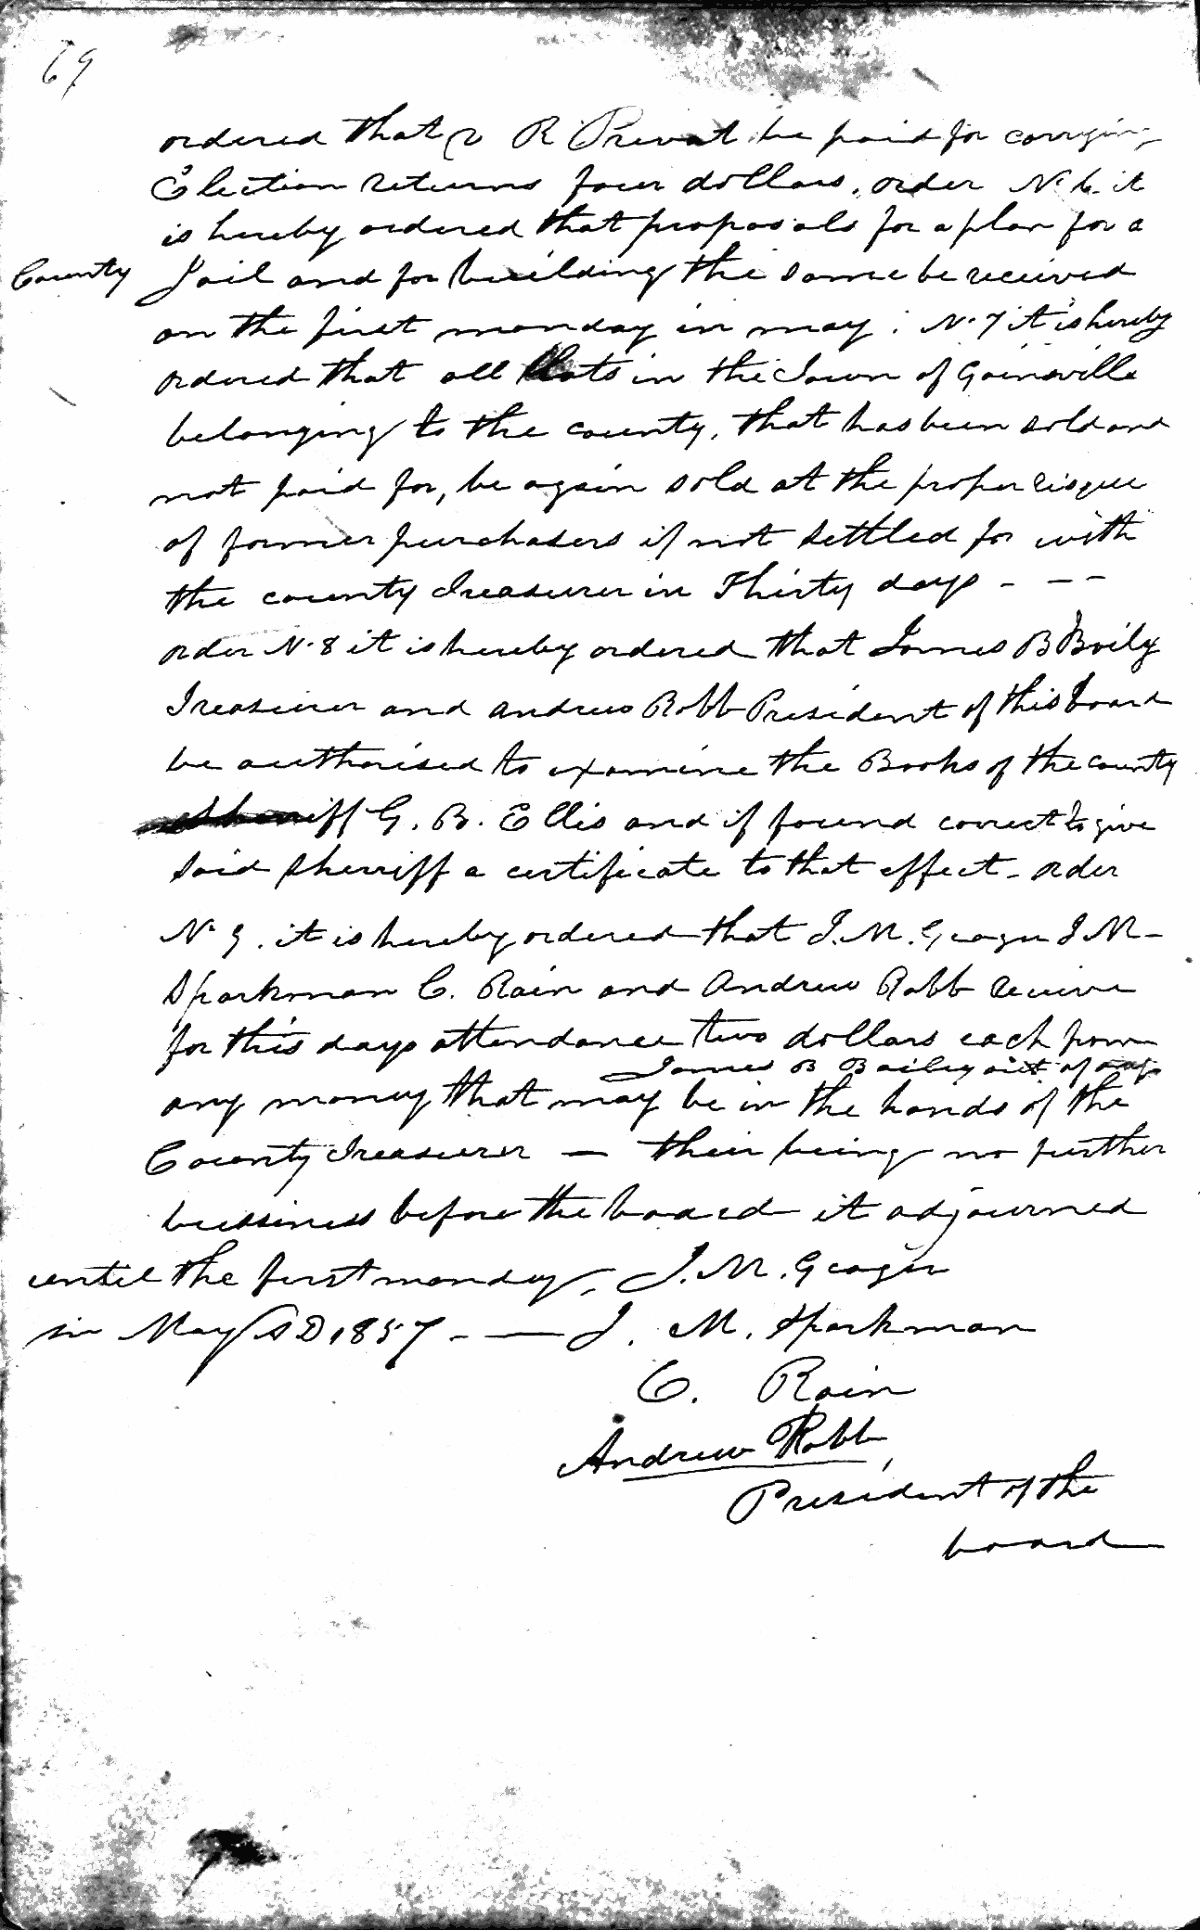 69
ordered that R Prevat be paid for carrying
Election returns four dollars. order No 6. it
is hereby ordered that proposals for a plan for a
County Jail and for building the same be received
on the first monday in may. No 7 it is hereby
ordered that all lots in the Town of Gainsville
belonging to the county, that has been sold and
not paid for, be again sold at the proper risque
of former purchasers if not settled for with
the county Treasurer in Thirty days - - -
order No 8 it is hereby ordered that James B Baily
Treasurer and Andrew Robb President of this board
be authorised to examine the Books of the county
Sherriff G. B. Ellis and if found correct to give
said sherriff a certificate to that effect - order
No 9. it is hereby ordered that J. M. Geager J M -
Sparkman C. Rain and Andrew Robb receive
for this days attendance two dollars each from
James B Bailey out of any
any money that may be in the hands of the
County Treasurer — their being no further
bussiness before the board it adjourned
until the first monday, J. M. Geager
in May AD 1857 - — J. M. Sparkman
C. Rain
Andrew Robb
President of the
board